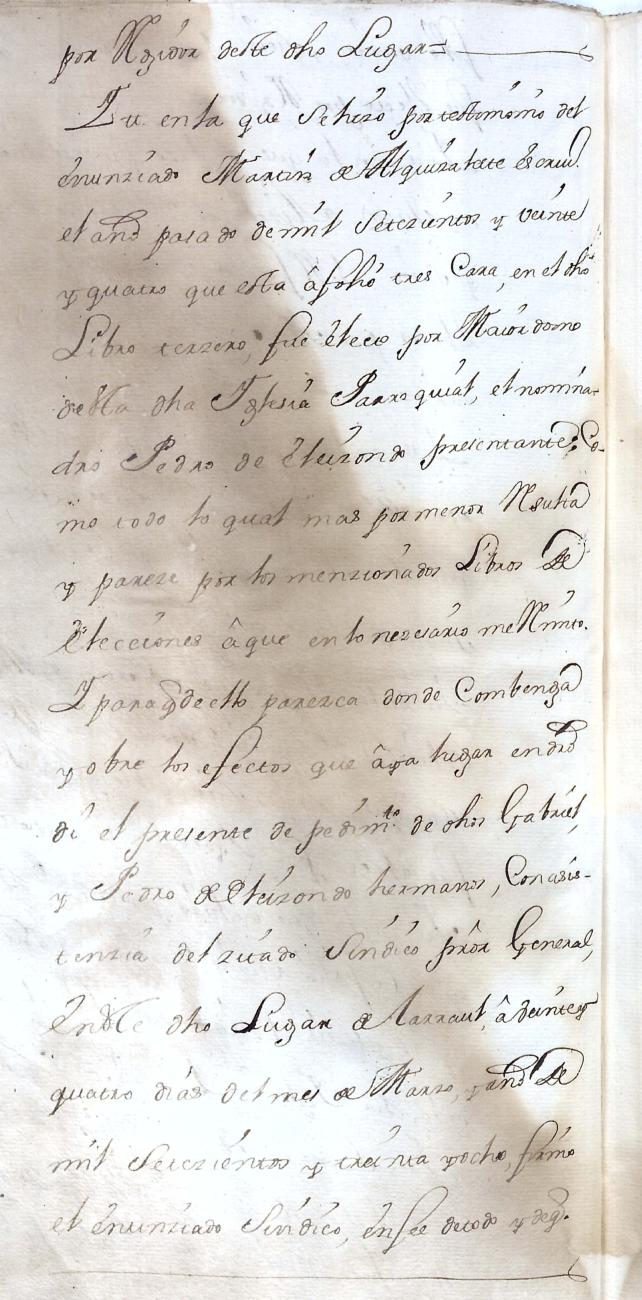 por Rexidor deste dho Lugar=
Y en la que se hizo por testimonio del
enunziado Martin de Alquizalete escriu.
el año pasado de mil setezientos y veinte
y quatro que esta â folio tres Cara, en el dho
Libro terzero, fue electo por Maiordomo
desta dha Iglesia Parroquial, el nomina-
do Pedro de Eleizondo presentante; Co-
mo todo lo qual mas por menor Resulta
y pareze por los menzionados Libros de
Elecciones â que en lo nezesario me Remito.
Y para q̃ de ello parezca donde Combenga
y obre los efectos que âya lugar en dro
di el presente de pedim.to de dhos Gabriel,
y Pedro de Eleizondo hermanos, Con asis-
tenzia del zitado Sindico prôr General,
En este dho Lugar de Larraul, â veinte y
quatro dias del mes de Marzo, y año de
mil setezientos y treinta y ocho, firmo
el enunziado Sindico, en fee de todo y de q̃.